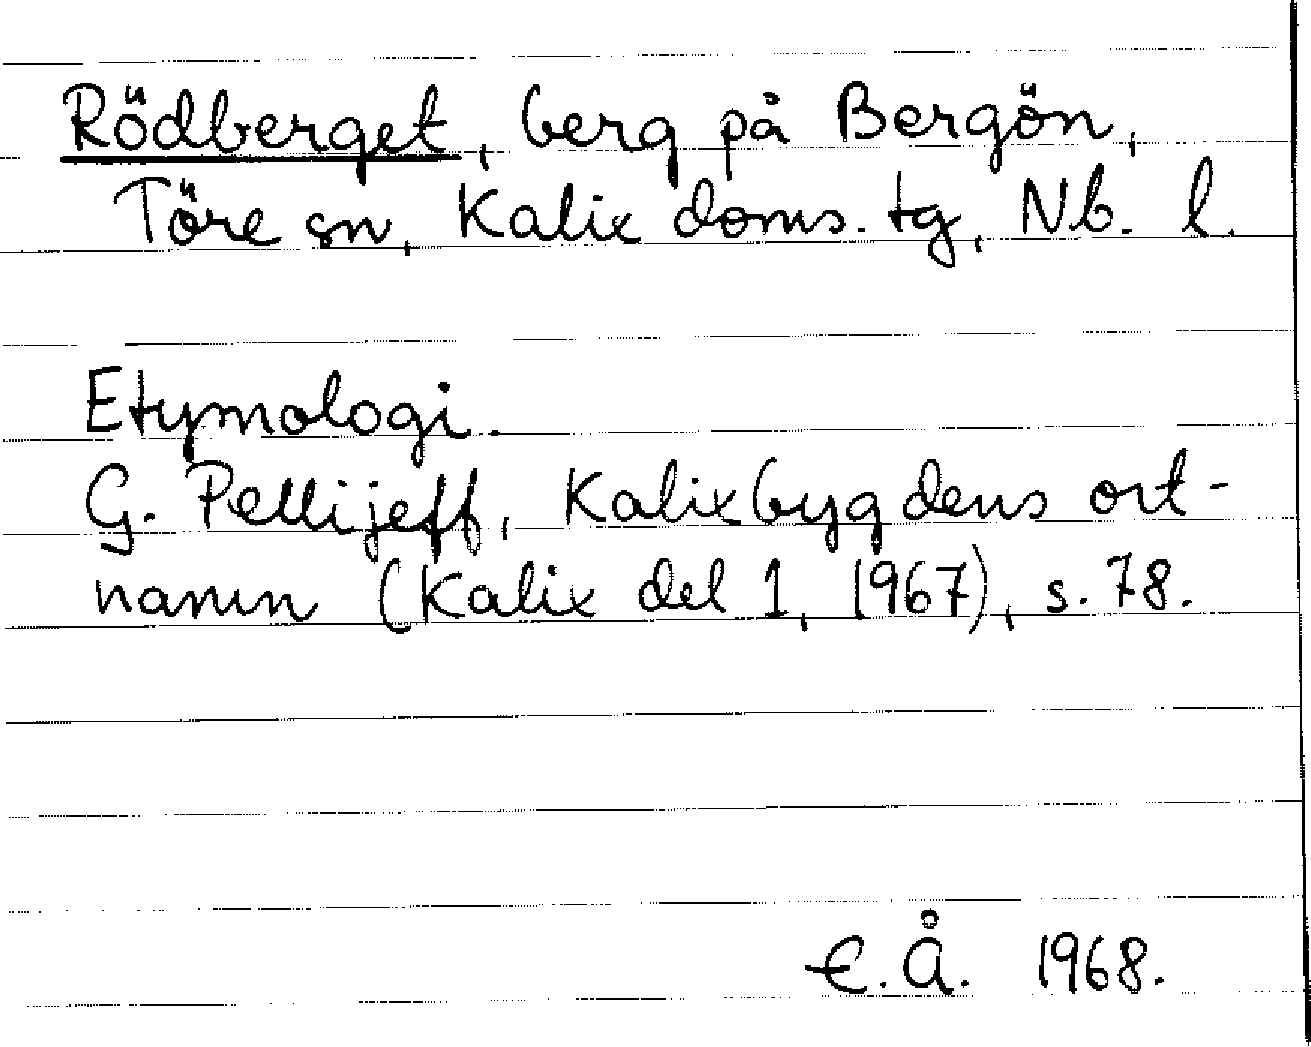 Rödberget, berg på Bergön,
Töre sn, Kalix doms. tg, Nb. l.
Etymologi.
G. Pellijeff, Kalixbygdens ort-
namn (Kalix del 1, 1967), s. 78.
E.Å. 1968.